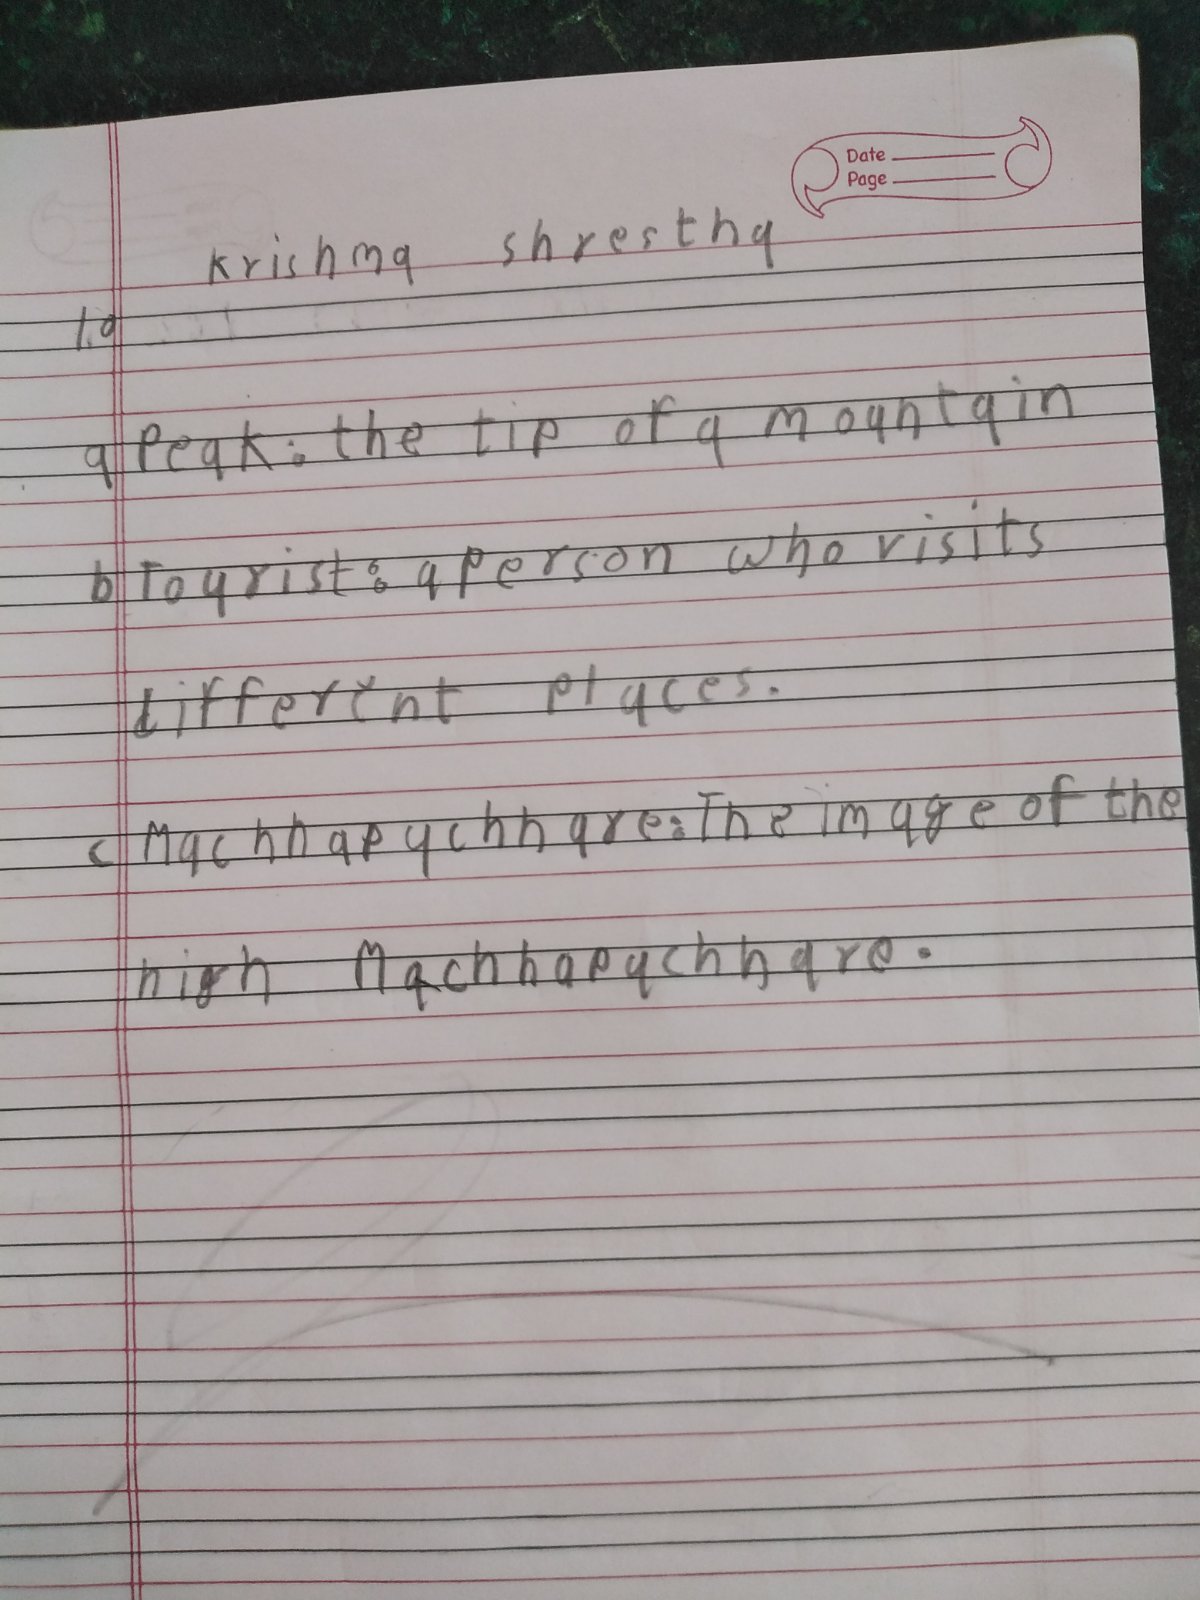 Date
Page
Krishna Shrestha
1.a
a Peak: the tip of a mountain
b Tourist: a person who visits
different places.
c Machhapuchhare: The image of the
high Machhapuchhare.